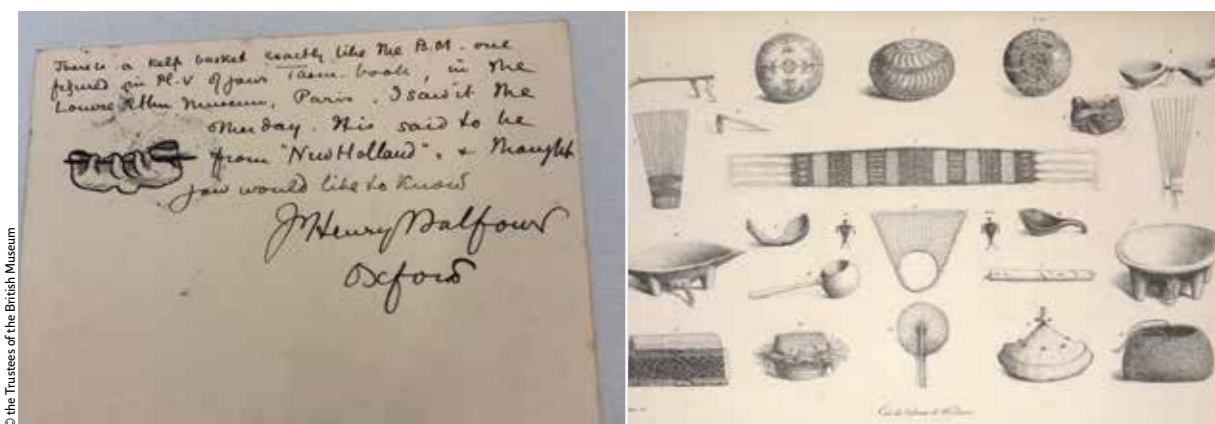 © the Trustees of the British Museum
There is a kelp basket exactly like the B.M. one
figured in Pl. V of your Tasm. book, in the
Louvre Ethn Museum, Paris. I saw it the
other day. It is said to be
from "New Holland". & thought
you would like to know
Henry Balfour
Oxford